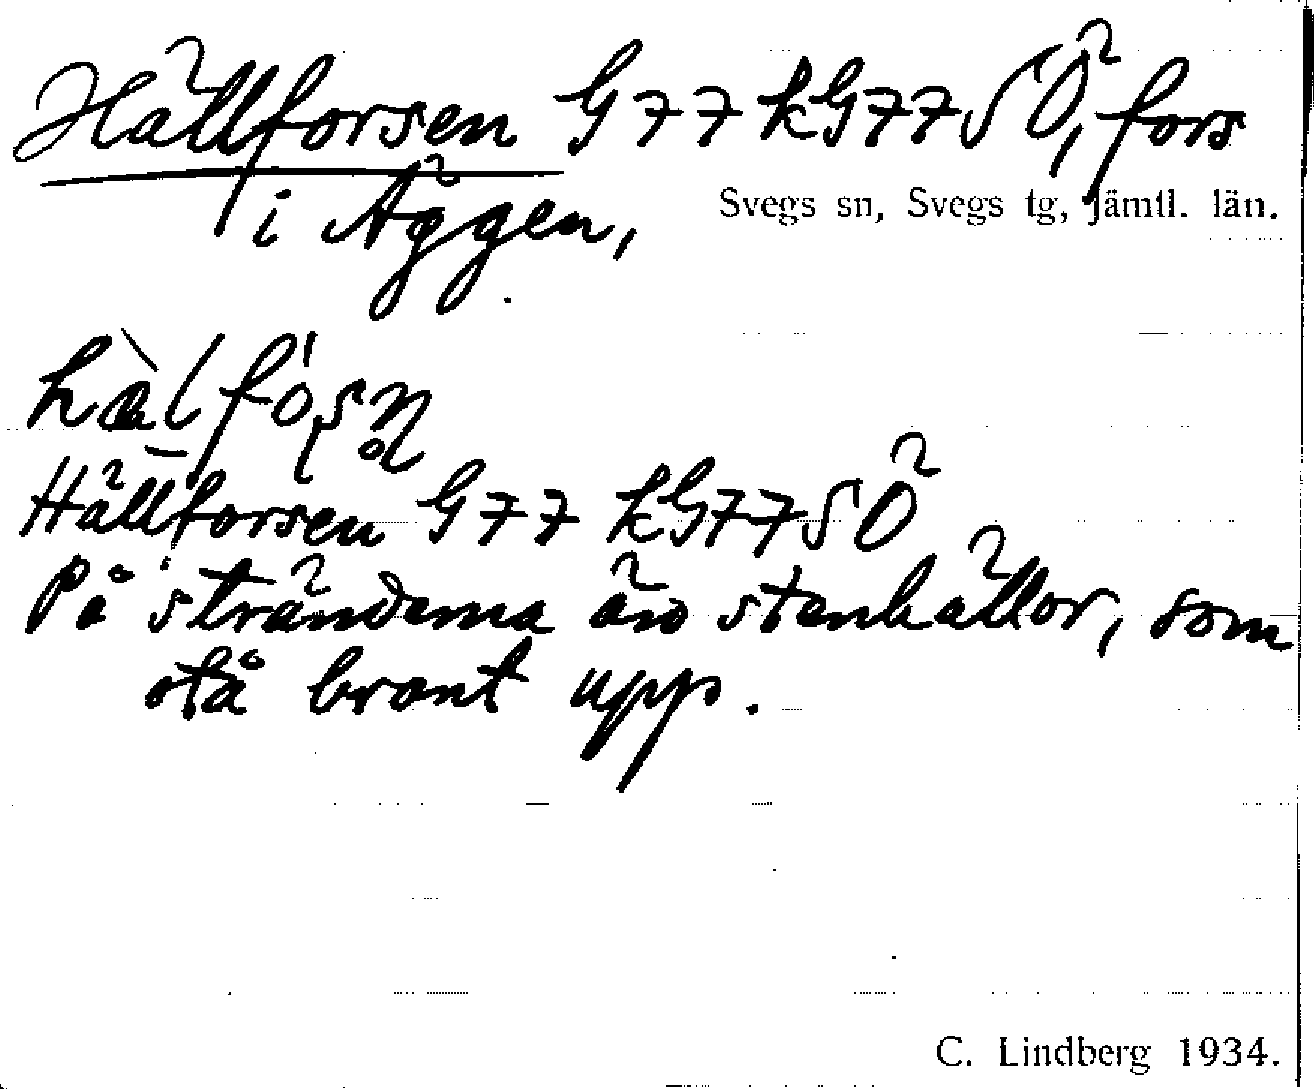 Hällforsen G77 kG77SÖ, fors
i Äggen,
Svegs sn, Svegs tg, Jämtl. län.
Hällforsen G77 kG77SÖ
På stränderna är stenhällor, som
stå brant upp.
C. Lindberg 1934.